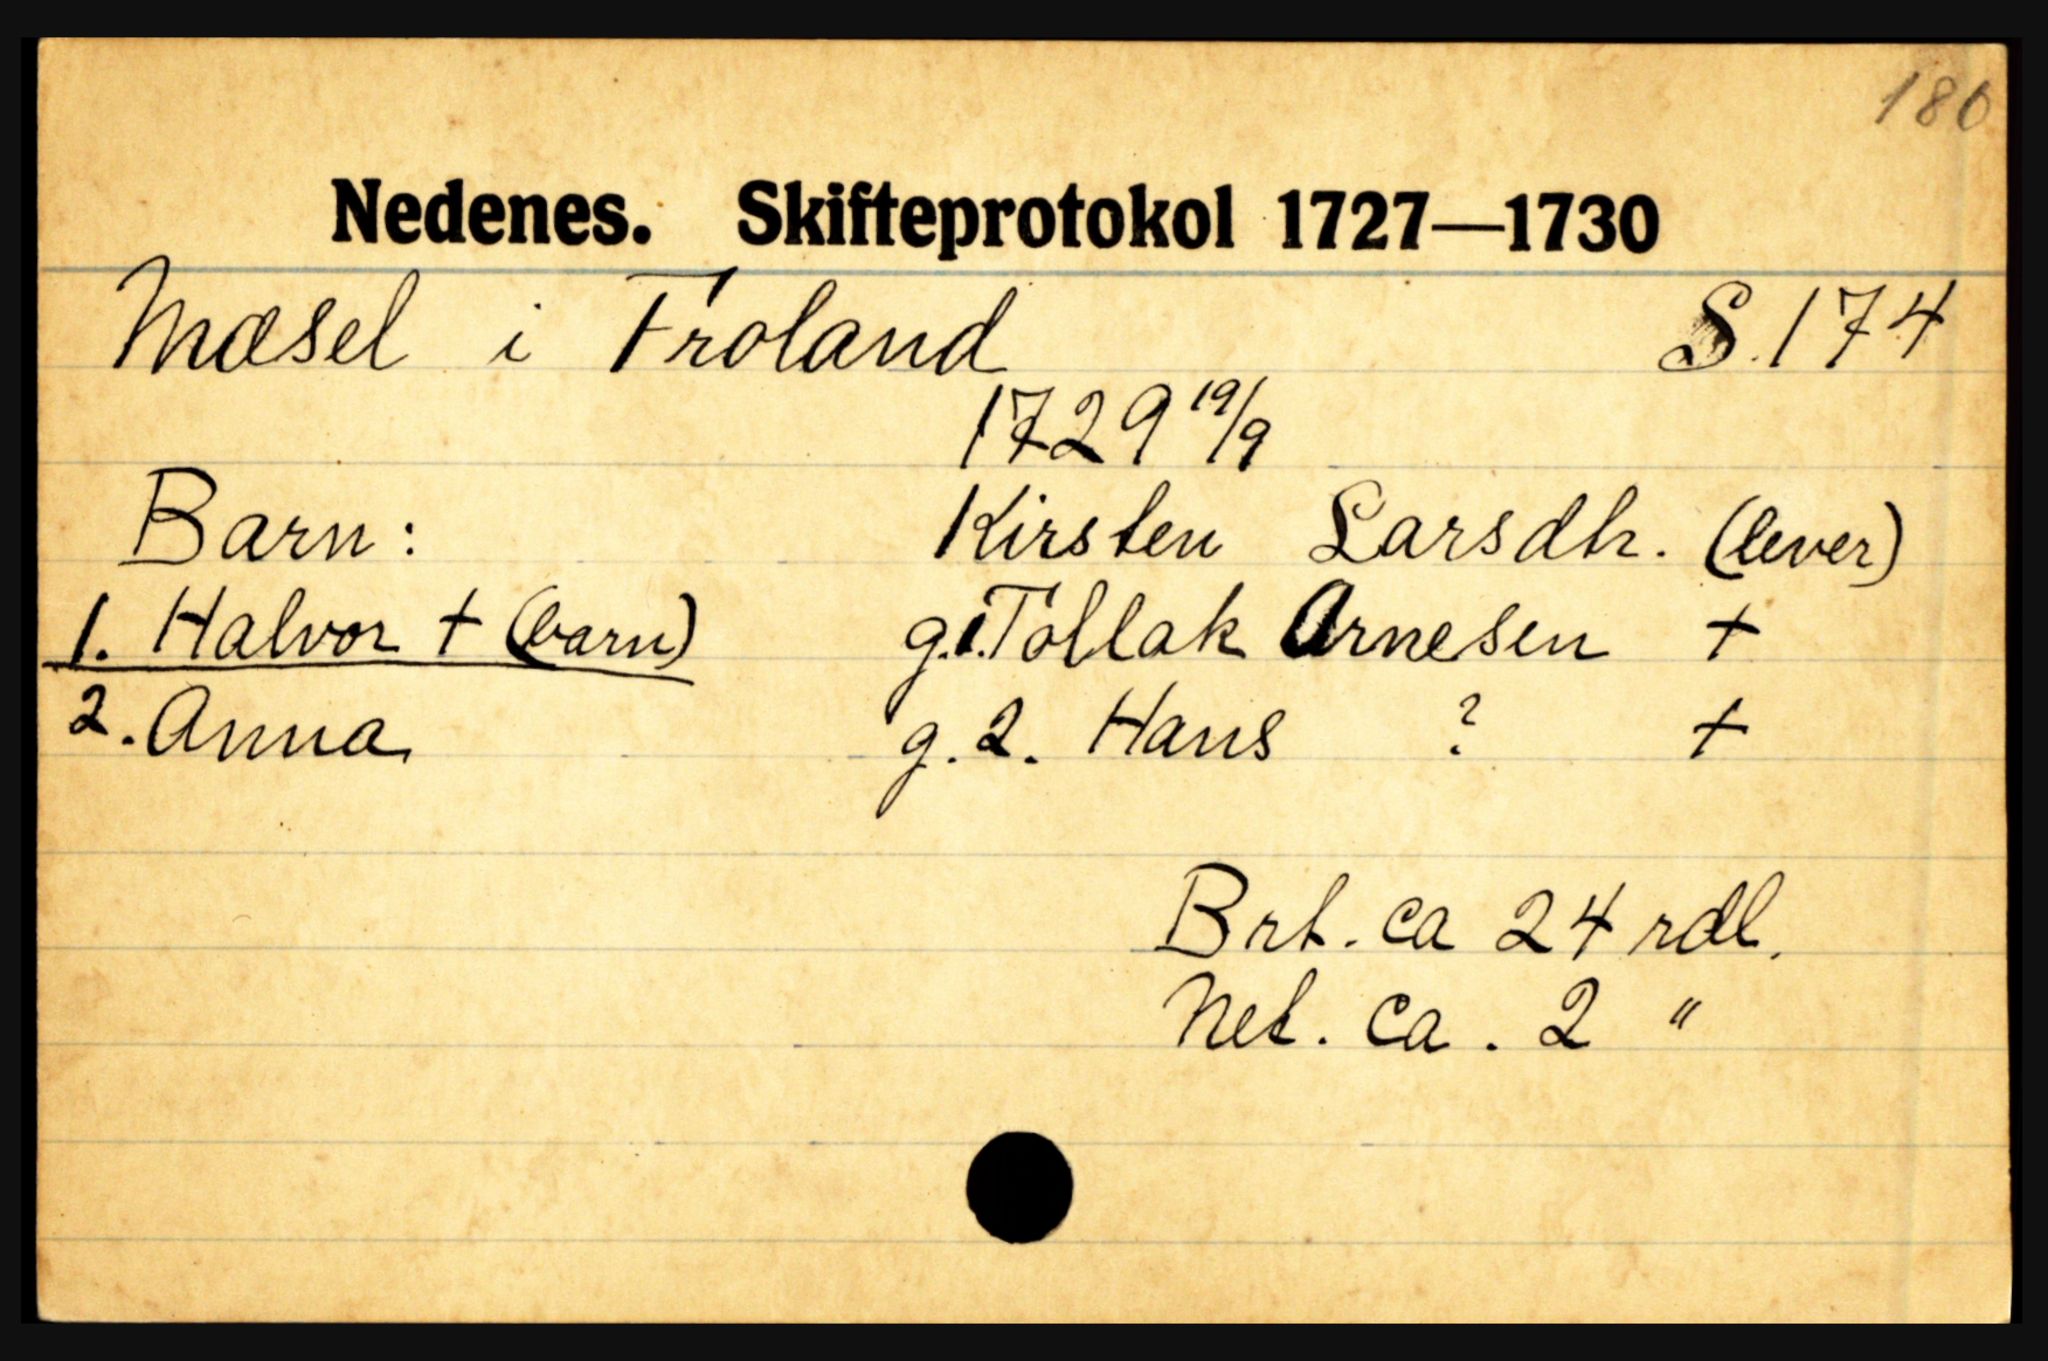 180
Nedenes. Skifteprotokol 1727—1730
Mæsel i Froland S. 174
1729 19/9
Barn: Kirsten Larsdtr. (lever)
1. Halvor + (barn) g.1. Tollak Arnesen +
2. Anna g. 2. Hans ? +
Brt. ca 24 rdl.
Net. ca. 2 "